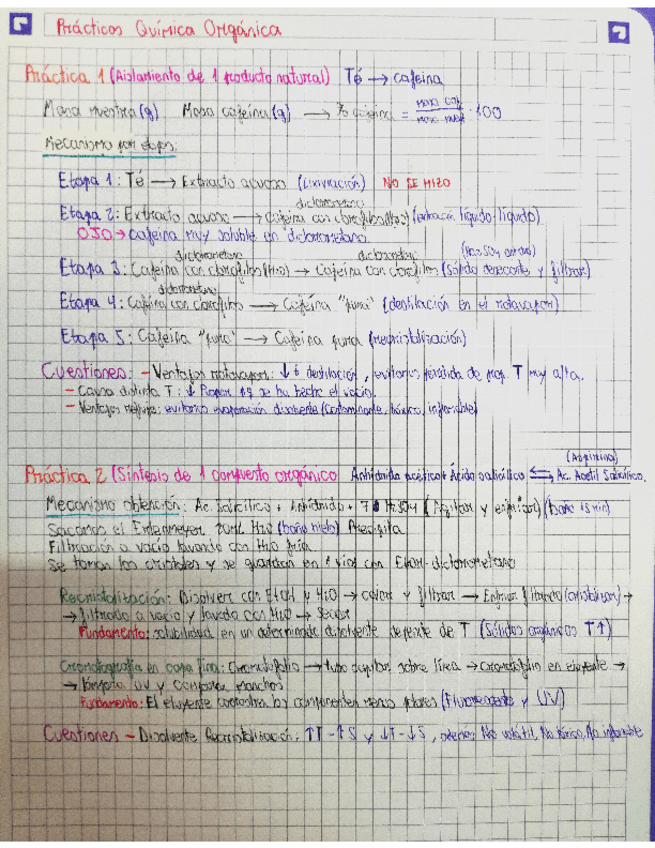 Prácticas Química Orgánica
Práctica 1 (Aislamiento de 1 producto natural) Té → cafeína
Masa muestra (g) Masa cafeína (g) → % cafeína = masa caf. / masa muest · 100
Mecanismo por etapas:
Etapa 1: Té → Extracto acuoso (Lixiviación) NO SE HIZO
diclorometano
Etapa 2: Extracto acuoso → Cafeína con clorofilas (extracción líquido-líquido)
OJO → Cafeína muy soluble en diclorometano
diclorometano diclorometano
Etapa 3: Cafeína con clorofilas → Cafeína con clorofilas (Sólido desecante y filtrar)
diclorometano
Etapa 4: Cafeína con clorofilas → Cafeína "pura" (destilación en el rotavapor)
Etapa 5: Cafeína "pura" → Cafeína pura (recristalización)
Cuestiones: - Ventajas rotavapor: ↓ t destilación, evitamos pérdida de T muy alta.
- Causa distinta T: ↓ se ha hecho el vacío.
- Ventajas reflujo: evitamos evaporación disolvente (Contaminante, tóxico, inflamable)
(Aspirina)
Práctica 2 (Síntesis de 1 compuesto orgánico Anhídrido acético + Ácido salicílico ⇌ Ac. Acetil Salicílico.
Mecanismo obtención: Ac. Salicílico + Anhídrido + H2SO4 (Agitar y enfriar) (baño 15 min)
Sacamos el Erlenmeyer 20mL H2O (baño hielo) Precipita
Filtración a vacío lavando con H2O fría
Se toman los cristales y se guardan en 1 vial con EtOH-diclorometano
Recristalización: Disolver con EtOH y H2O → calor y filtrar → Enfriar filtrado (cristalizan) →
→ filtrado a vacío y lavado con H2O → Secar
Fundamento: solubilidad en un determinado disolvente depende de T (Sólidos orgánicos T↑)
Cromatografía en capa fina: Cromatofolio → tubo capilar sobre línea → Cromatofolio en eluyente →
→ lámpara UV y comparar manchas
Fundamento: El eluyente arrastra los componentes menos polares (Fluorescente y UV)
Cuestiones - Disolvente Recristalización: ↑T - ↑S y ↓T - ↓S, además No volátil, No tóxico, No inflamable